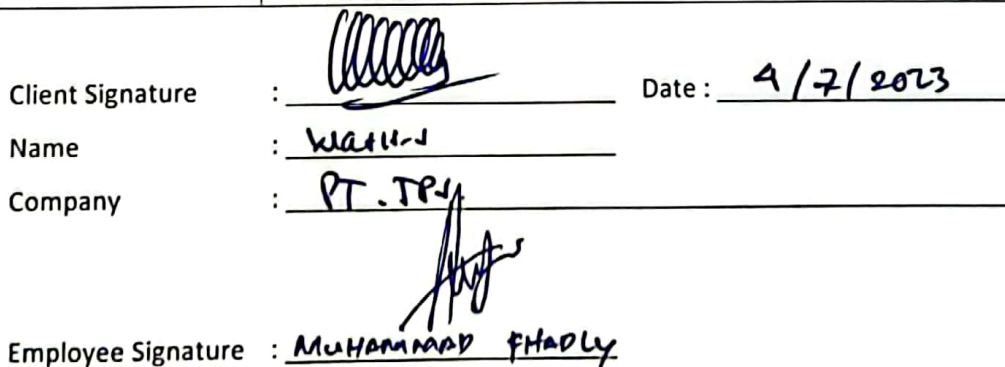 Client Signature : Date : 4/7/2023
Name :
Company : PT. TPS
Employee Signature : MUHAMMAD FHADLY